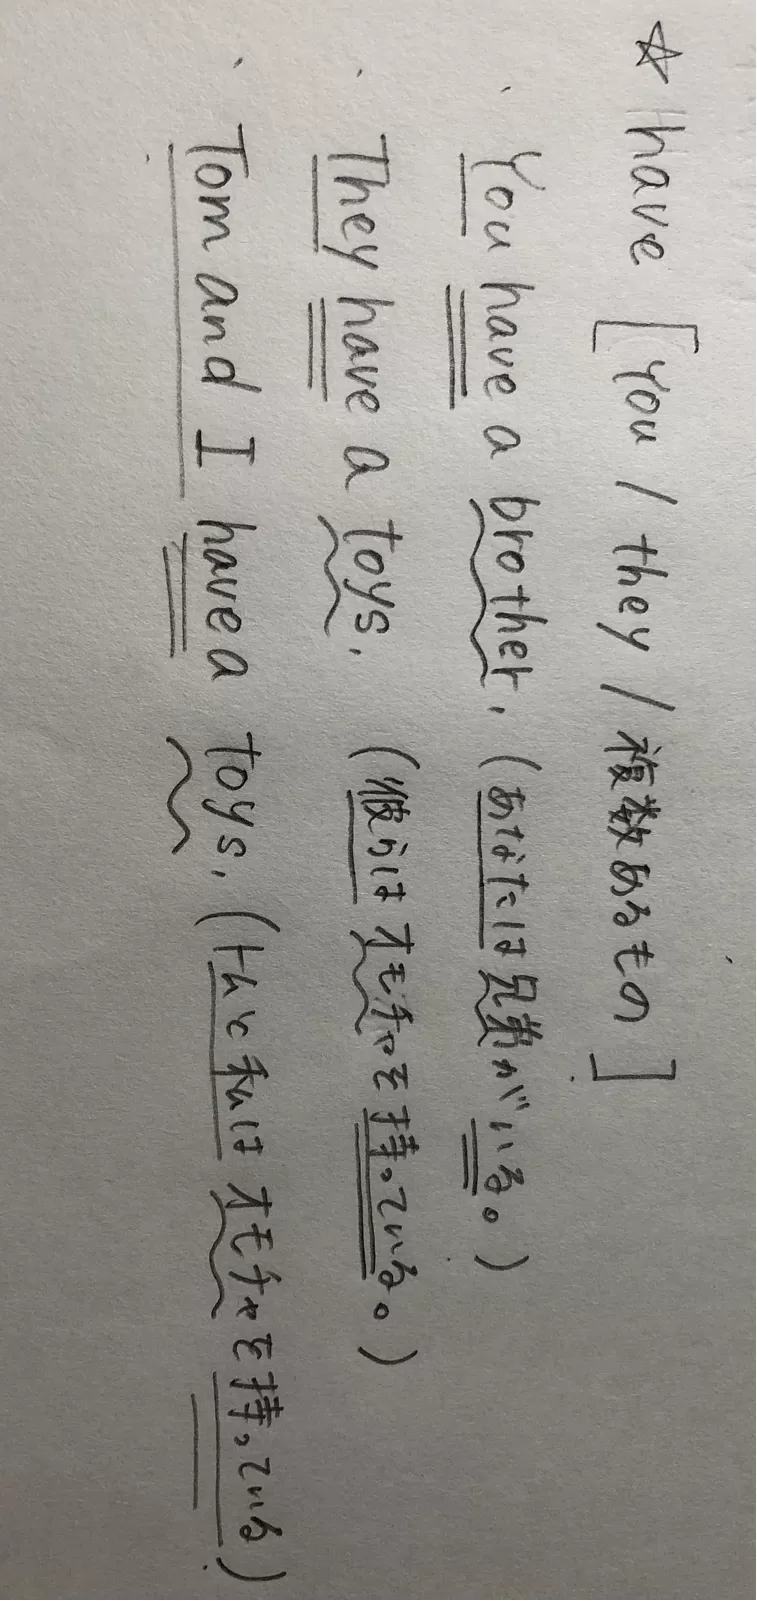 ☆ have [You / they / 複数あるもの]
・You have a brother. (あなたは兄弟がいる。)
・They have a toys. (彼らはオモチャを持っている。)
・Tom and I have a toys. (トムと私はオモチャを持っている)